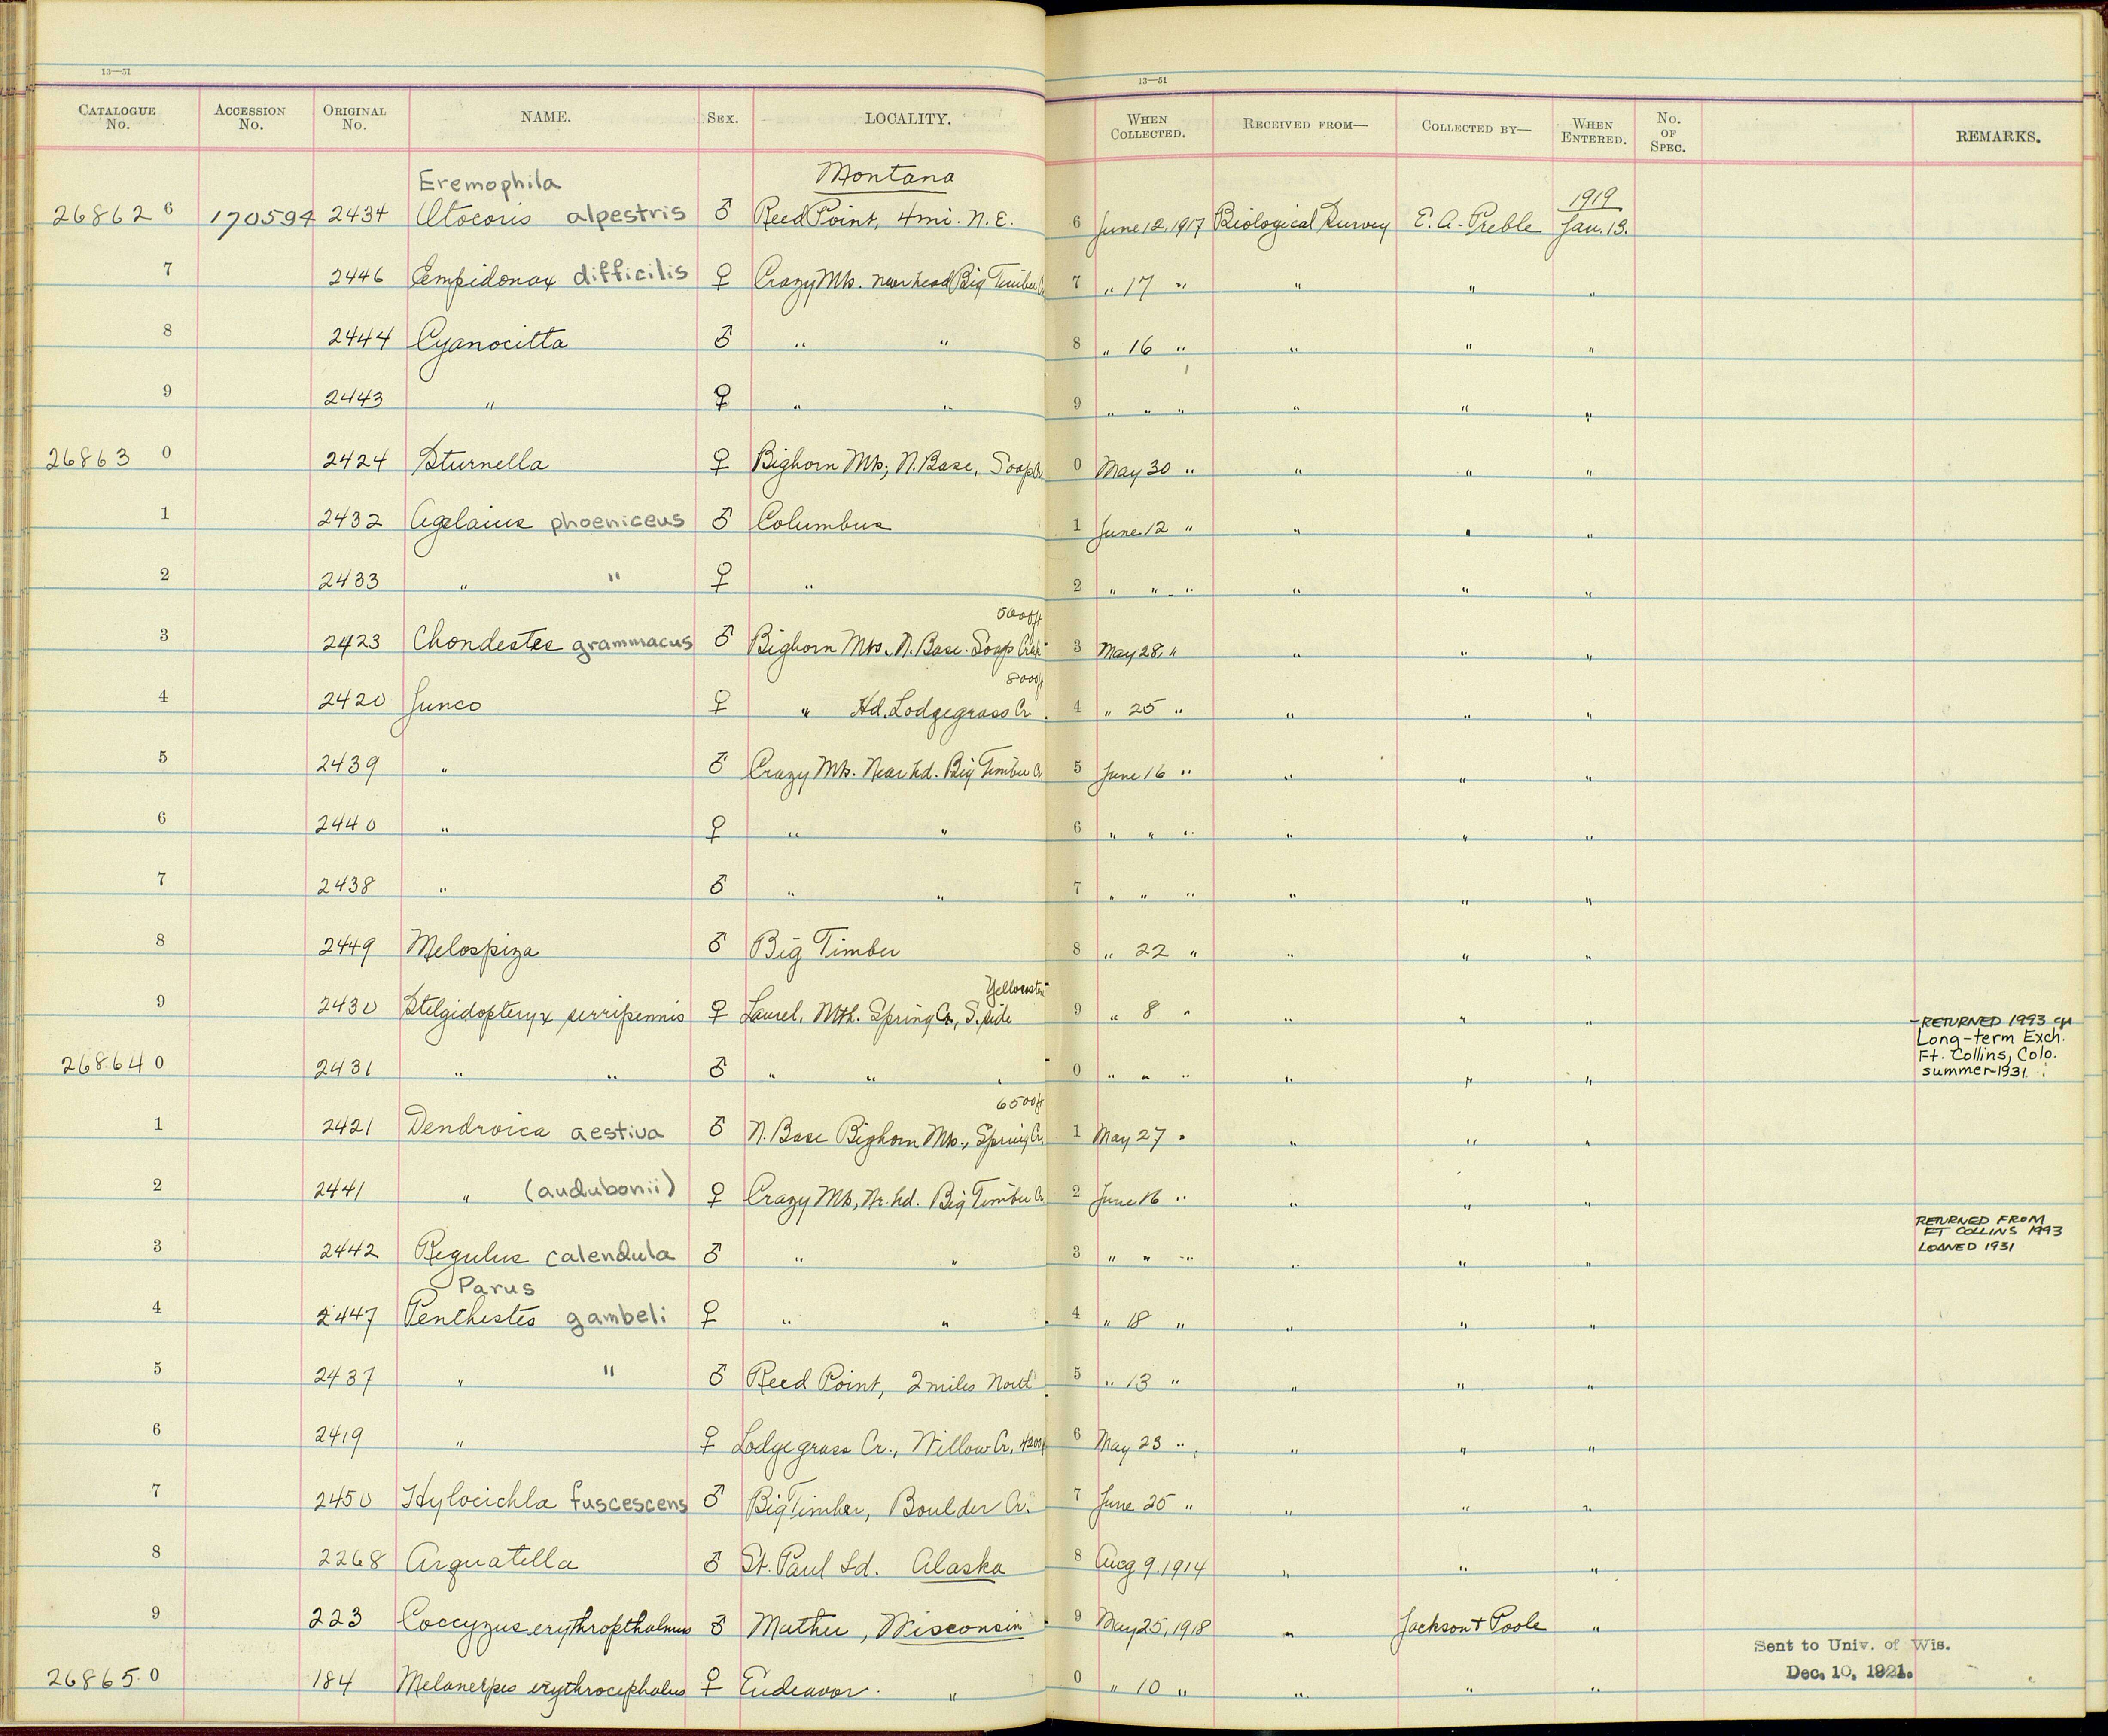 13—51
13—51
CATALOGUE No. ACCESSION No. ORIGINAL No. NAME. SEX. LOCALITY. WHEN COLLECTED. RECEIVED FROM— COLLECTED BY— WHEN ENTERED. No. OF SPEC. REMARKS.
Eremophila Montana 1919
26862 6 170594 2434 Otocoris alpestris ♂ Reed Point, 4 mi. N.E. 6 June 12, 1917 Biological Survey E. A. Preble Jan. 13.
7 2446 Empidonax difficilis ♀ Crazy Mts. near head Big Timber Cr 7 " 17 " " " "
8 2444 Cyanocitta ♂ " " 8 " 16 " " " "
9 2443 " ♀ " " 9 " " " " " "
26863 0 2424 Sturnella ♀ Bighorn Mts; N. Base, Soap Cr. 0 May 30 " " " "
1 2432 Agelaius phoeniceus ♂ Columbus 1 June 12 " " " "
2 2433 " " ♀ " 2 " " " " " "
5000ft
3 2423 Chondestes grammacus ♂ Bighorn Mts. N. Base. Soap Creek 3 May 28, " " " "
8000ft
4 2420 Junco ♀ " Hd. Lodgegrass Cr. 4 " 25 " " " "
5 2439 " ♂ Crazy Mts. Near hd. Big Timber Cr. 5 June 16 " " " "
6 2440 " ♀ " " 6 " " " " " "
7 2438 " ♂ " " 7 " " " " " "
8 2449 Melospiza ♂ Big Timber 8 " 22 " " " "
Yellowstone
9 2430 Stelgidopteryx serripennis ♀ Laurel, Mth. Spring Cr., S. side 9 " 8 " " " "
RETURNED 1993
Long-term Exch.
Ft. Collins, Colo.
summer-1931
26864 0 2431 " " ♂ " " " 0 " " " " " "
6500ft
1 2421 Dendroica aestiva ♂ N. Base Bighorn Mts., Spring Cr. 1 May 27 " " " "
2 2441 " (audubonii) ♀ Crazy Mts, Nr. hd. Big Timber Cr. 2 June 16 " " " "
RETURNED FROM
FT COLLINS 1993
LOANED 1931
3 2442 Regulus calendula ♂ " " 3 " " " " " "
Parus
4 2447 Penthestes gambeli ♀ " " 4 " 18 " " " "
5 2437 " " ♂ Reed Point, 2 miles North 5 " 13 " " " "
6 2419 " ♀ Lodge grass Cr., Willow Cr, 4200ft 6 May 23 " " " "
7 2450 Hylocichla fuscescens ♂ Big Timber, Boulder Cr. 7 June 25 " " " "
8 2268 Arquatella ♂ St. Paul Id. Alaska 8 Aug 9. 1914 " " "
9 223 Coccyzus erythropthalmus ♂ Mather, Wisconsin 9 May 25, 1918 " Jackson & Poole "
Sent to Univ. of Wis.
Dec. 10, 1921.
26865 0 184 Melanerpes erythrocephalus ♀ Endeavor. " 0 " 10 " " " "